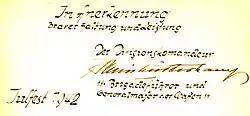 In Anerkennung
braver Haltung und Leistung
Der Divisionskomandeur
ϟϟ Brigadeführer und
Generalmajor der Waffen ϟϟ
Julfest 1942